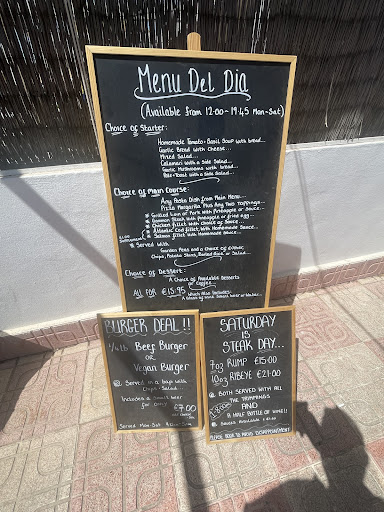 Menu Del Dia
(Available from 12:00-19:45 Mon-Sat)
Choice of Starter:
Homemade Tomato+Basil Soup with bread...
Garlic Bread with Cheese...
Mixed Salad...
Calamari with a Side Salad...
Garlic Mushrooms with bread...
Pate+Toast with a Side Salad...
Choice of Main Course:
Any Pasta Dish from Main Menu...
Pizza Margarita Plus Any Two Toppings...
Grilled Loin of Pork with Pineapple or Sauce...
Gammon Steak with Pineapple or fried egg...
Chicken fillet with Choice of Sauce...
Atlantic Cod fillet with Homemade Sauce...
Salmon fillet with Homemade Sauce...
Served with
Garden Peas and a Choice of either
Chips, Potato, Boiled Rice or Salad...
Choice of Dessert:
A Choice of Available Desserts
or Coffee...
All For €15.95
Which Also Includes:
BURGER DEAL!!
1/4lb Beef Burger
OR
Vegan Burger
Served in a bap with
Chips + Salad
Includes a small beer
for only
€7.00
Served Mon-Sat
SATURDAY
IS
STEAK DAY...
7oz RUMP €15.00
10oz RIBEYE €21.00
BOTH SERVED WITH ALL
THE TRIMMINGS
AND
A HALF BOTTLE OF WINE!!
Sauces Available
PLEASE BOOK TO AVOID DISAPPOINTMENT